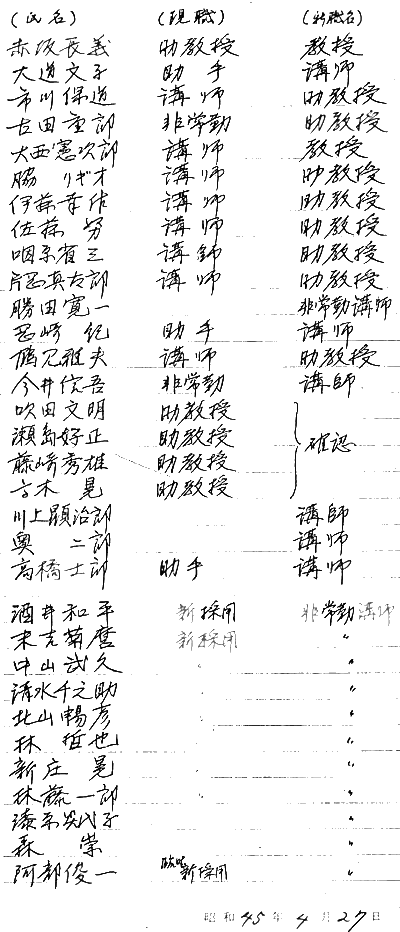 (氏名) (現職) (新職名)
赤坂長義 助教授 教授
大道文子 助手 講師
市川保道 講師 助教授
古田重郎 非常勤 助教授
大西憲次郎 講師 教授
脇 リギオ 講師 助教授
伊藤幸雄 講師 助教授
佐藤 努 講師 助教授
省三 講師 助教授
真太郎 講師 助教授
勝田寛一 非常勤講師
崎 紀 助手 講師
雅夫 講師 助教授
今井信吾 非常勤 講師
吹田文明 助教授
瀬島好正 助教授 確認
藤崎秀雄 助教授
木 晃 助教授
川上顕治郎 講師
奥 二郎 講師
高橋士郎 助手 講師
酒井和平 新採用 非常勤講師
末吉菊麿 新採用 〃
中山誠久 〃 〃
清水千之助 〃
北山暢彦 〃
林 哲也 〃
新庄 晃 〃
林藤一郎 〃 〃
子 〃
森 崇 〃
阿部俊一 新採用 〃
昭和45年4月27日